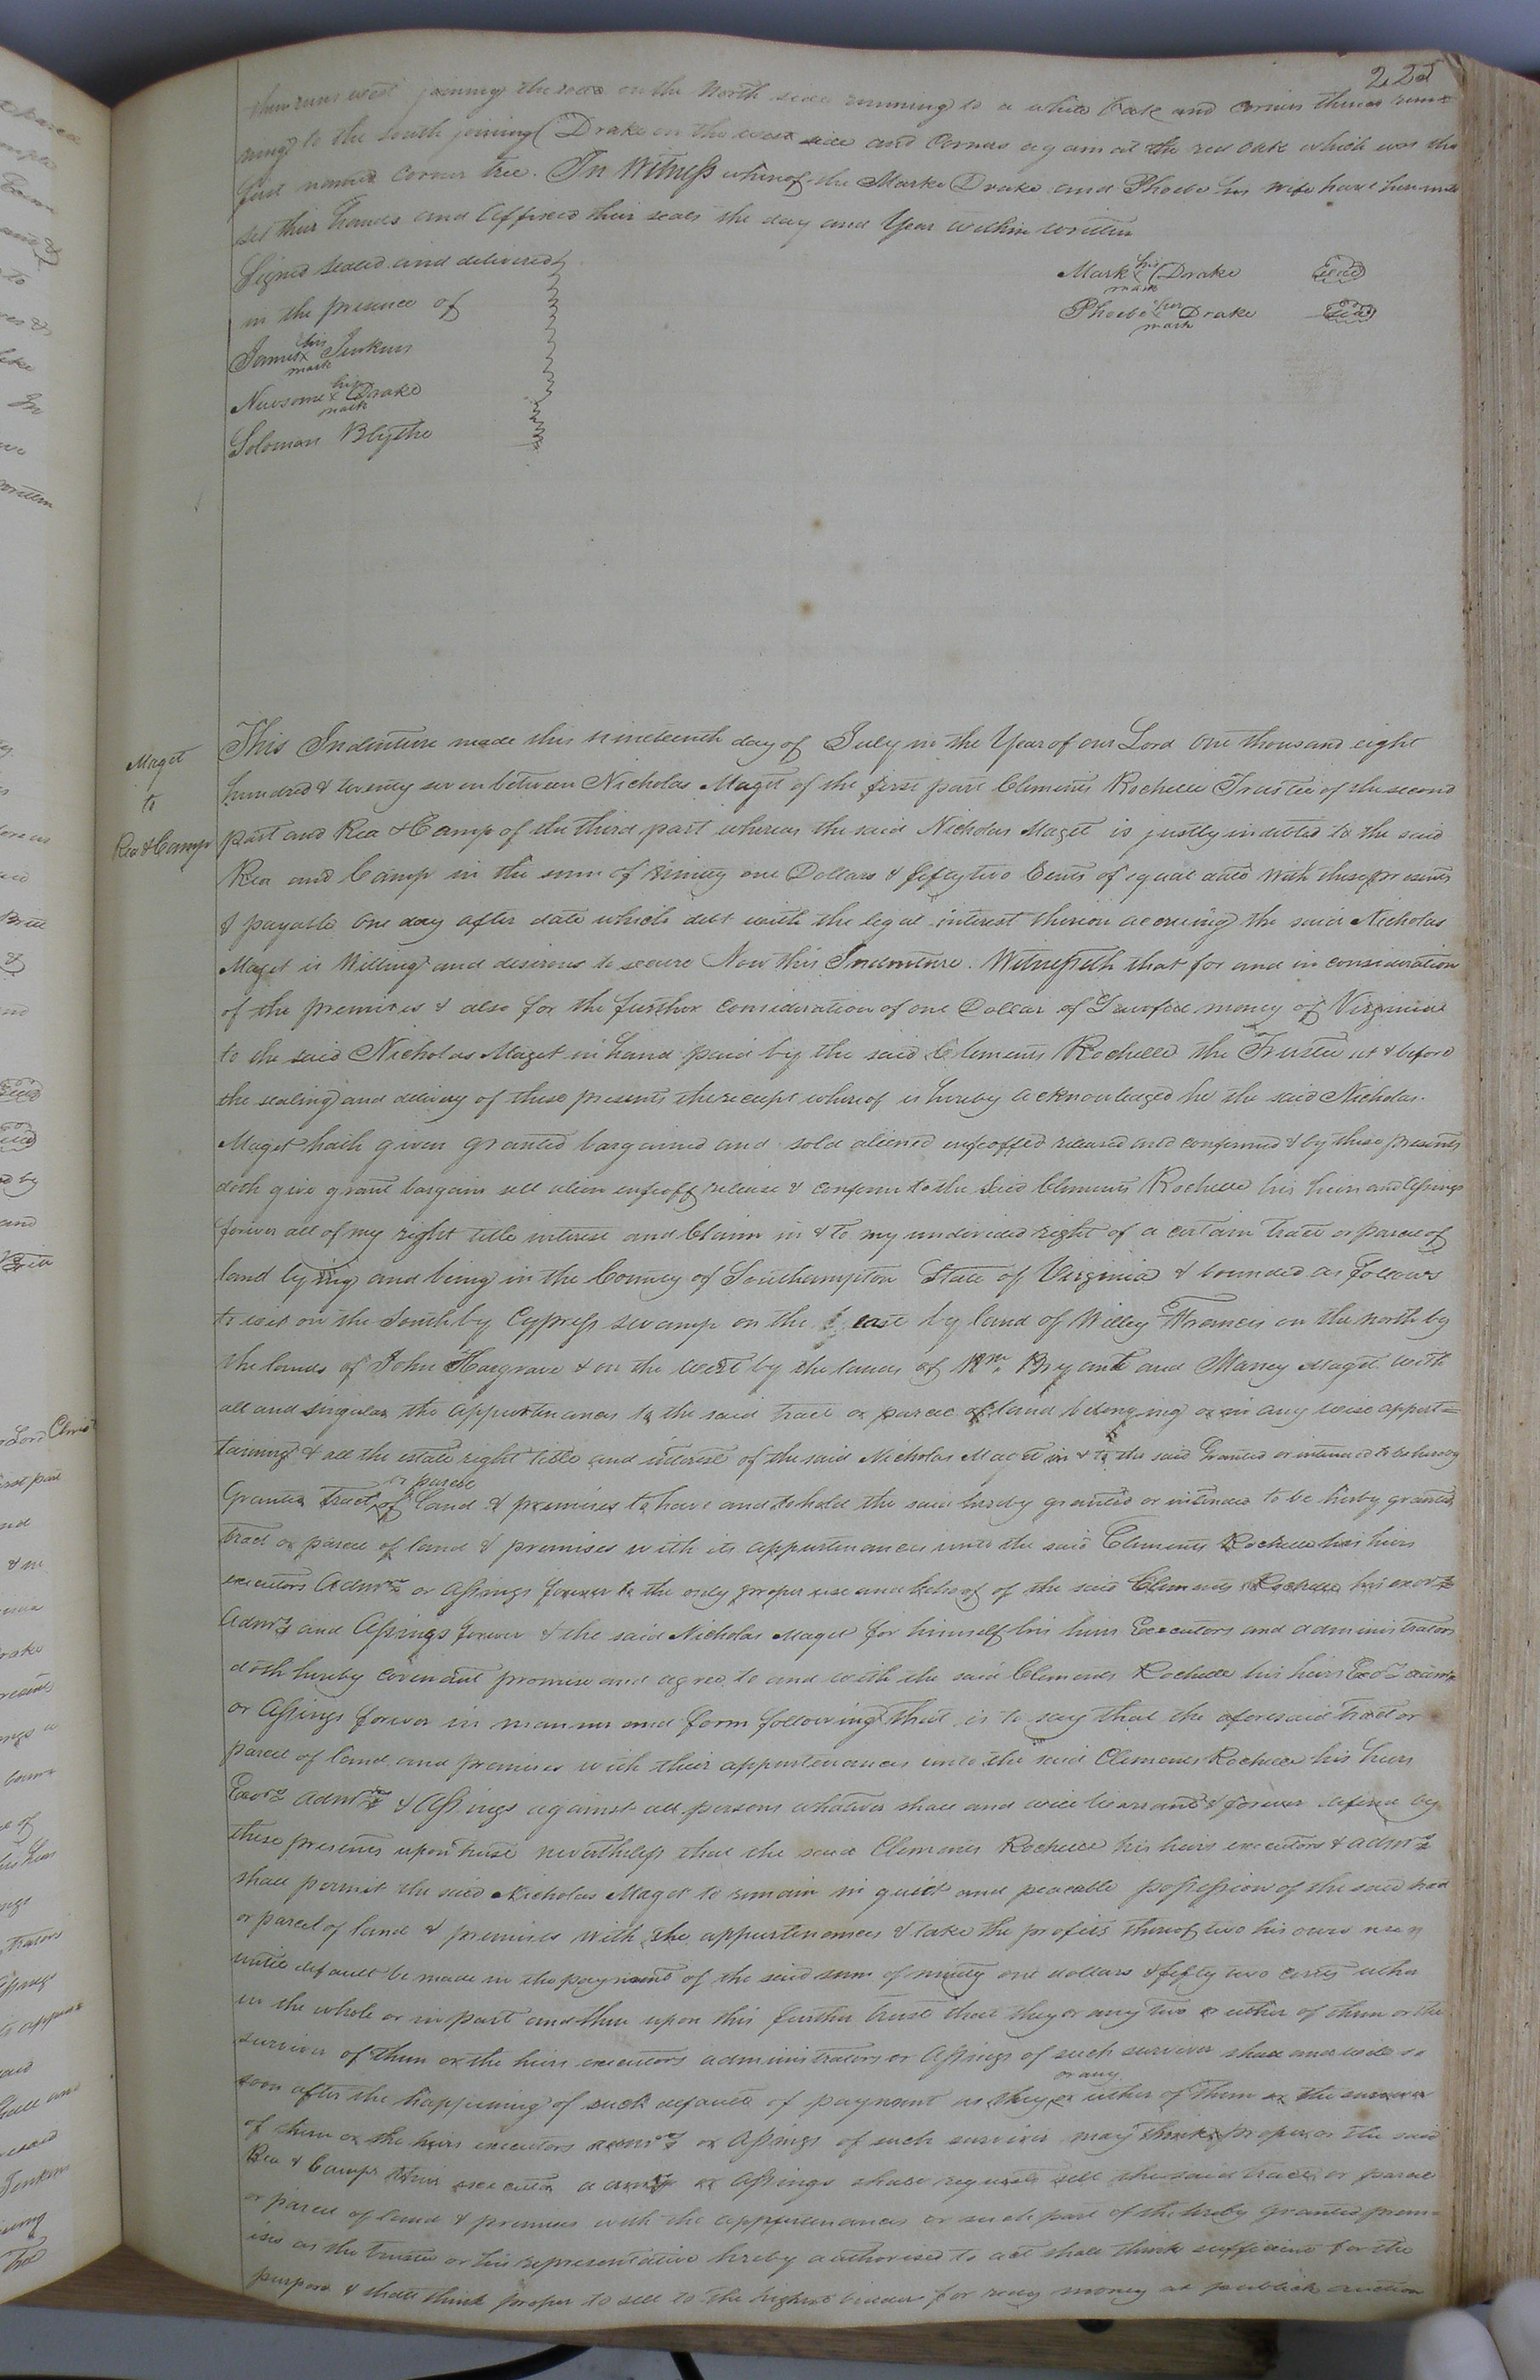 225
runs west joining the road on the North side running to a white Oak and corners thence run=
ning to the south joining Drake on the west side and Corners again at the red oak which was the
first named Corner tree. In Witness whereof the Marke Drake and Phoebe his wife have hereunto
set their hands and affixed their seals the day and Year within written
Signed sealed and delivered
in the presence of
James his x mark Jenkins
Newsome his x mark Drake
Soloman Blythe
Mark his x mark Drake Seal
Phoebe her x mark Drake Seal
Maget
to
Rea & Camp
This Indenture made this nineteenth day of July in the Year of our Lord One thousand eight
hundred & twenty seven between Nicholas Maget of the first part Clements Rochelle Trustee of the second
part and Rea & Camp of the third part whereas the said Nicholas Maget is justly indebted to the said
Rea and Camp in the sum of Ninety one Dollars & fifty two Cents of equal date with these presents
& payable One day after date which debt with the legal interest thereon accruing the said Nicholas
Maget is Willing and desirous to secure Now this Indenture Witnesseth that for and in consideration
of the premises & also for the further consideration of one Dollar of Lawful money of Virginia
to the said Nicholas Maget in hand paid by the said Clements Rochelle the Trustee at & before
the sealing and delivery of these presents the receipt whereof is hereby acknowledged he the said Nicholas
Maget hath given granted bargained and sold aliened enfeoffed released and confirmed & by these presents
doth give grant bargain sell alien enfeoff release & confirm to the Said Clements Rochelle his heirs and Assings
forever all of my right title interest and Claim in & to my undivided right of a certain tract or parcel of
land lying and being in the County of Southampton State of Virginia & bounded as follows
to wit on the South by Cypress swamp on the east by land of Willey Francis on the north by
the lands of John Hargrave & on the west by the lands of Wm Bryant and Maney Maget with
all and singular the appurtenances to the said tract or parcel of land belonging or in any wise appert=
taining & all the estate right title and interest of the said Nicholas Maget in & to the said Granted or intended to be hereby
Granted tract or parcel of Land & premises to have and to hold the said hereby granted or intended to be hereby granted
tract or parcel of land & premises with its appurtenances unto the said Clements Rochelle his heirs
executors Admrs or Assings forever to the only proper use and behoof of the said Clements Rochelle his exors
Admrs and Assings forever & the said Nicholas Maget for himself his heirs Executors and administrators
doth hereby covenant promise and agree to and with the said Clements Rochelle his heirs Exors admrs
or Assings forever in manner and form following that is to say that the aforesaid tract or
parcel of land and premises with their appurtenances unto the said Clements Rochelle his heirs
Exors admrs & Assings against all persons whatever shall and will warrant & forever defend by
these presents upon trust nevertheless that the said Clements Rochelle his heirs executors & admrs
shall permit the said Nicholas Maget to remain in quiet and peaceable possession of the said tract
or parcel of land & premises with the appurtenances & take the profits thereof two his own use
until default be made in the payment of the said sum of ninety one dollars & fifty two cents either
in the whole or in part and then upon this further trust that they or any two or either of them or the
surviver of them or the heirs executors administrators or Assings of such surviver shall and will so
soon after the happening of such default of payment as they or any or either of them or the surviver
of them or the heirs executors admrs or Assings of such surviver may think proper or the said
Rea & Camp their executor admrs or Assings shall request sell the said tract or parcel
or parcel of land & premises with the appurtenances or such part of the hereby granted prem=
ises as the trustee or his representative hereby authorised to act shall think sufficient for the
purpose & shall think proper to sell to the highest bidder for ready money at publick auction